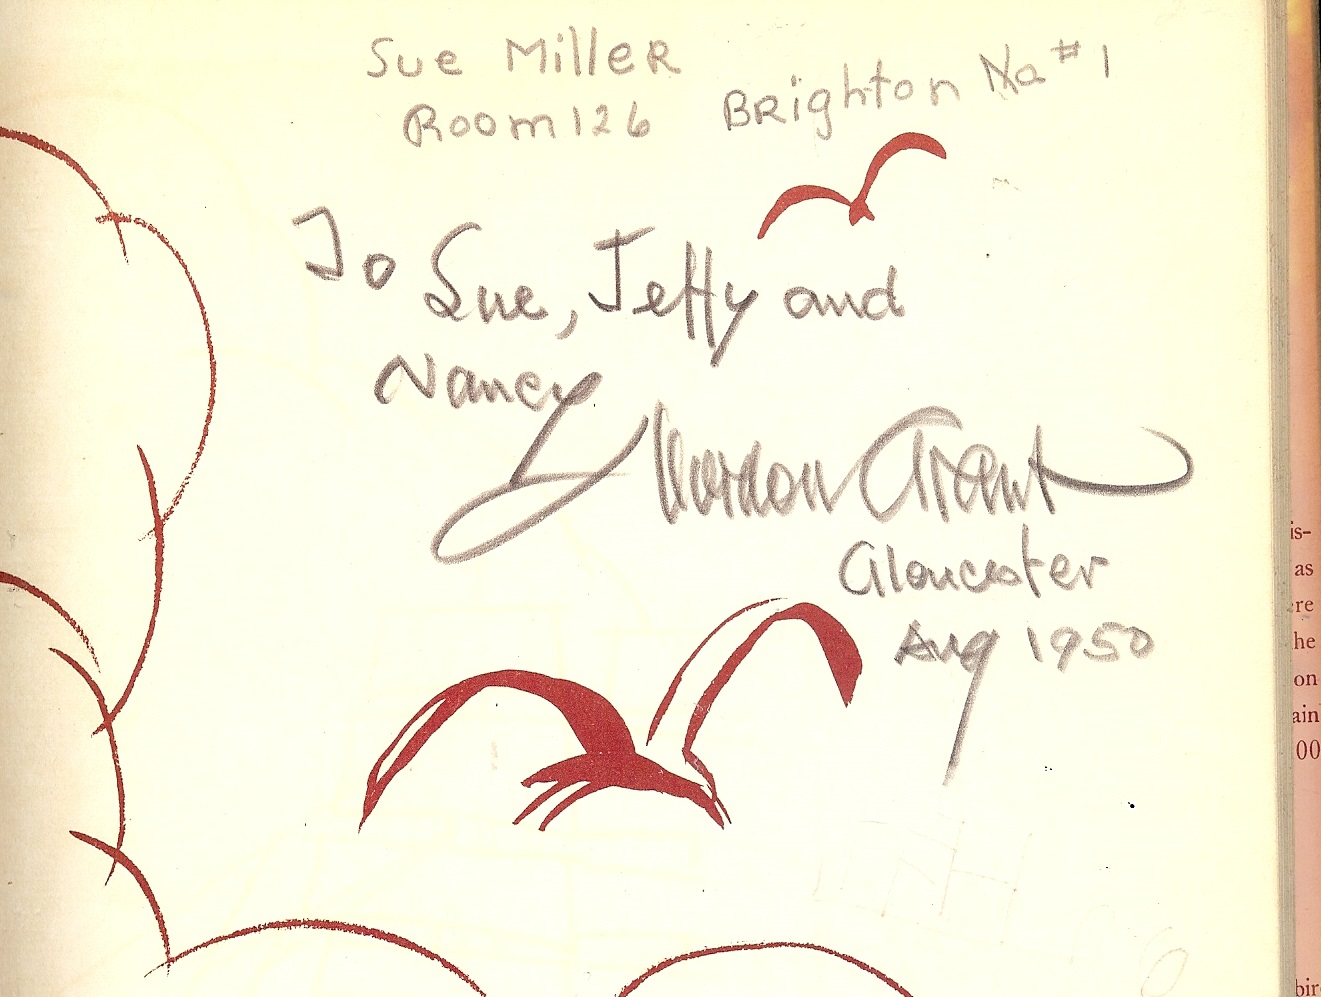 Sue Miller
Room 126 Brighton No #1
To Sue, Jeffy and
Nancy
Gordon Grant
Gloucester
Aug 1950
is-
as
ere
he
on
ain
00
bir